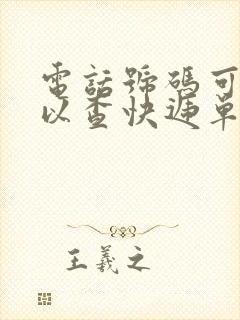 電話號碼可
以查快遞單
王羲之